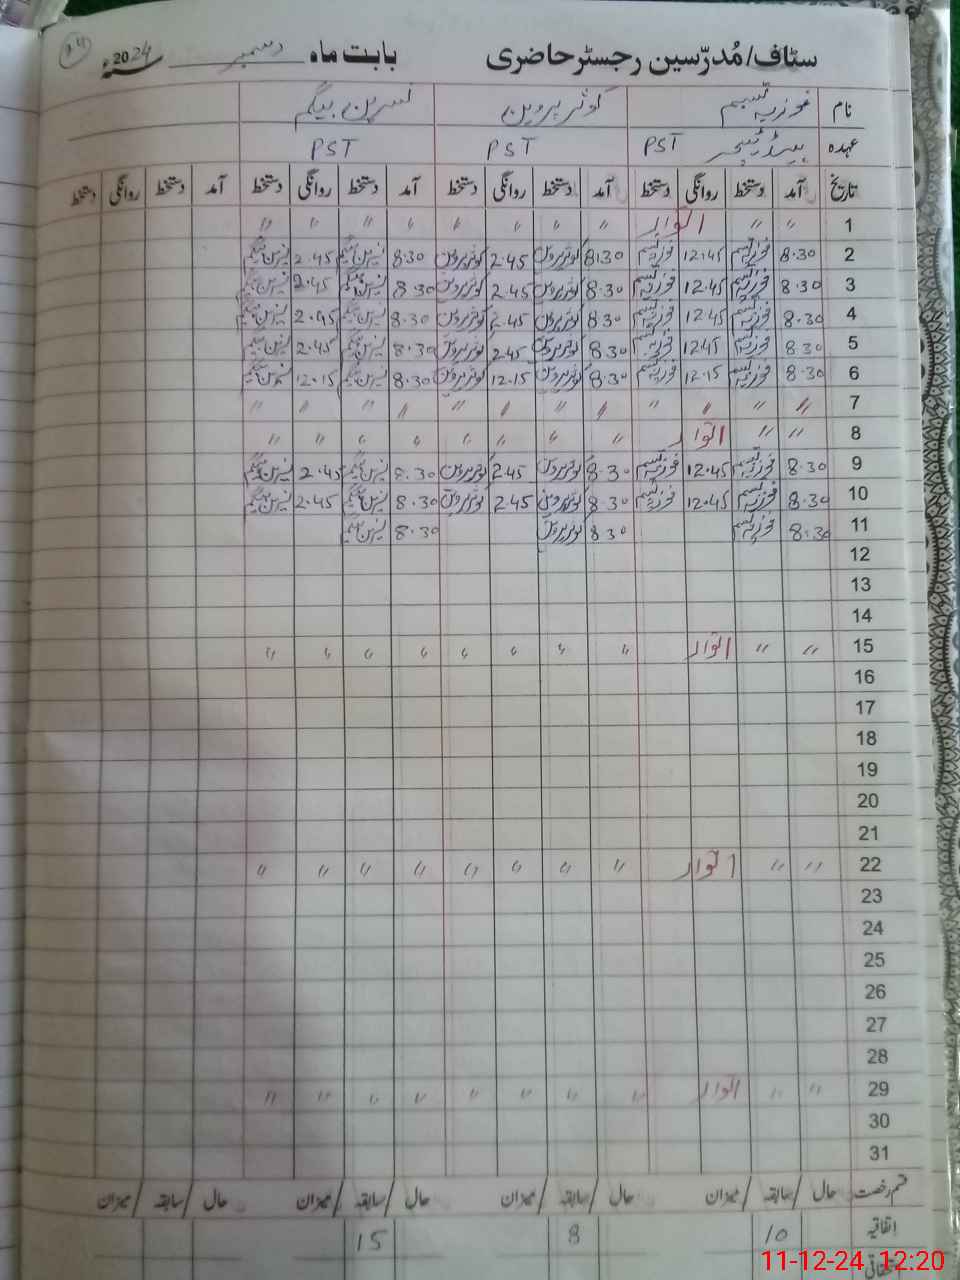 سٹاف/مُدرّسین رجسٹر حاضری بابت ماہ دسمبر سنہ 2024ء
نام فوزیہ تبسم کوثر پروین نسرین بیگم
عہدہ ہیڈ ٹیچر PST PST PST
تاریخ آمد دستخط روانگی دستخط آمد دستخط روانگی دستخط آمد دستخط روانگی دستخط آمد دستخط روانگی دستخط
1 〃 〃 اتوار 〃 〃 〃 〃 〃 〃 〃 〃
2 8.30 فوزیہ تبسم 12.45 فوزیہ تبسم 8.30 کوثر پروین 2.45 کوثر پروین 8.30 نسرین بیگم 2.45 نسرین بیگم
3 8.30 فوزیہ تبسم 12.45 فوزیہ تبسم 8.30 کوثر پروین 2.45 کوثر پروین 8.30 نسرین بیگم 2.45 نسرین بیگم
4 8.30 فوزیہ تبسم 12.45 فوزیہ تبسم 8.30 کوثر پروین 2.45 کوثر پروین 8.30 نسرین بیگم 2.45 نسرین بیگم
5 8.30 فوزیہ تبسم 12.45 فوزیہ تبسم 8.30 کوثر پروین 2.45 کوثر پروین 8.30 نسرین بیگم 2.45 نسرین بیگم
6 8.30 فوزیہ تبسم 12.15 فوزیہ تبسم 8.30 کوثر پروین 12.15 کوثر پروین 8.30 نسرین بیگم 12.15 نسرین بیگم
7 〃 〃 〃 〃 〃 〃 〃 〃 〃 〃 〃 〃
8 〃 〃 اتوار 〃 〃 〃 〃 〃 〃 〃 〃
9 8.30 فوزیہ تبسم 12.45 فوزیہ تبسم 8.30 کوثر پروین 2.45 کوثر پروین 8.30 نسرین بیگم 2.45 نسرین بیگم
10 8.30 فوزیہ تبسم 12.45 فوزیہ تبسم 8.30 کوثر پروین 2.45 کوثر پروین 8.30 نسرین بیگم 2.45 نسرین بیگم
11 8.30 فوزیہ تبسم 8.30 کوثر پروین 8.30 نسرین بیگم
12
13
14
15 〃 〃 اتوار 〃 〃 〃 〃 〃 〃 〃 〃
16
17
18
19
20
21
22 〃 〃 اتوار 〃 〃 〃 〃 〃 〃 〃 〃
23
24
25
26
27
28
29 〃 〃 اتوار 〃 〃 〃 〃 〃 〃 〃 〃
30
31
قسم رخصت حال / سابقہ / میزان حال / سابقہ / میزان حال / سابقہ / میزان حال / سابقہ / میزان
اتفاقیہ 10 8 15
11-12-24 12:20